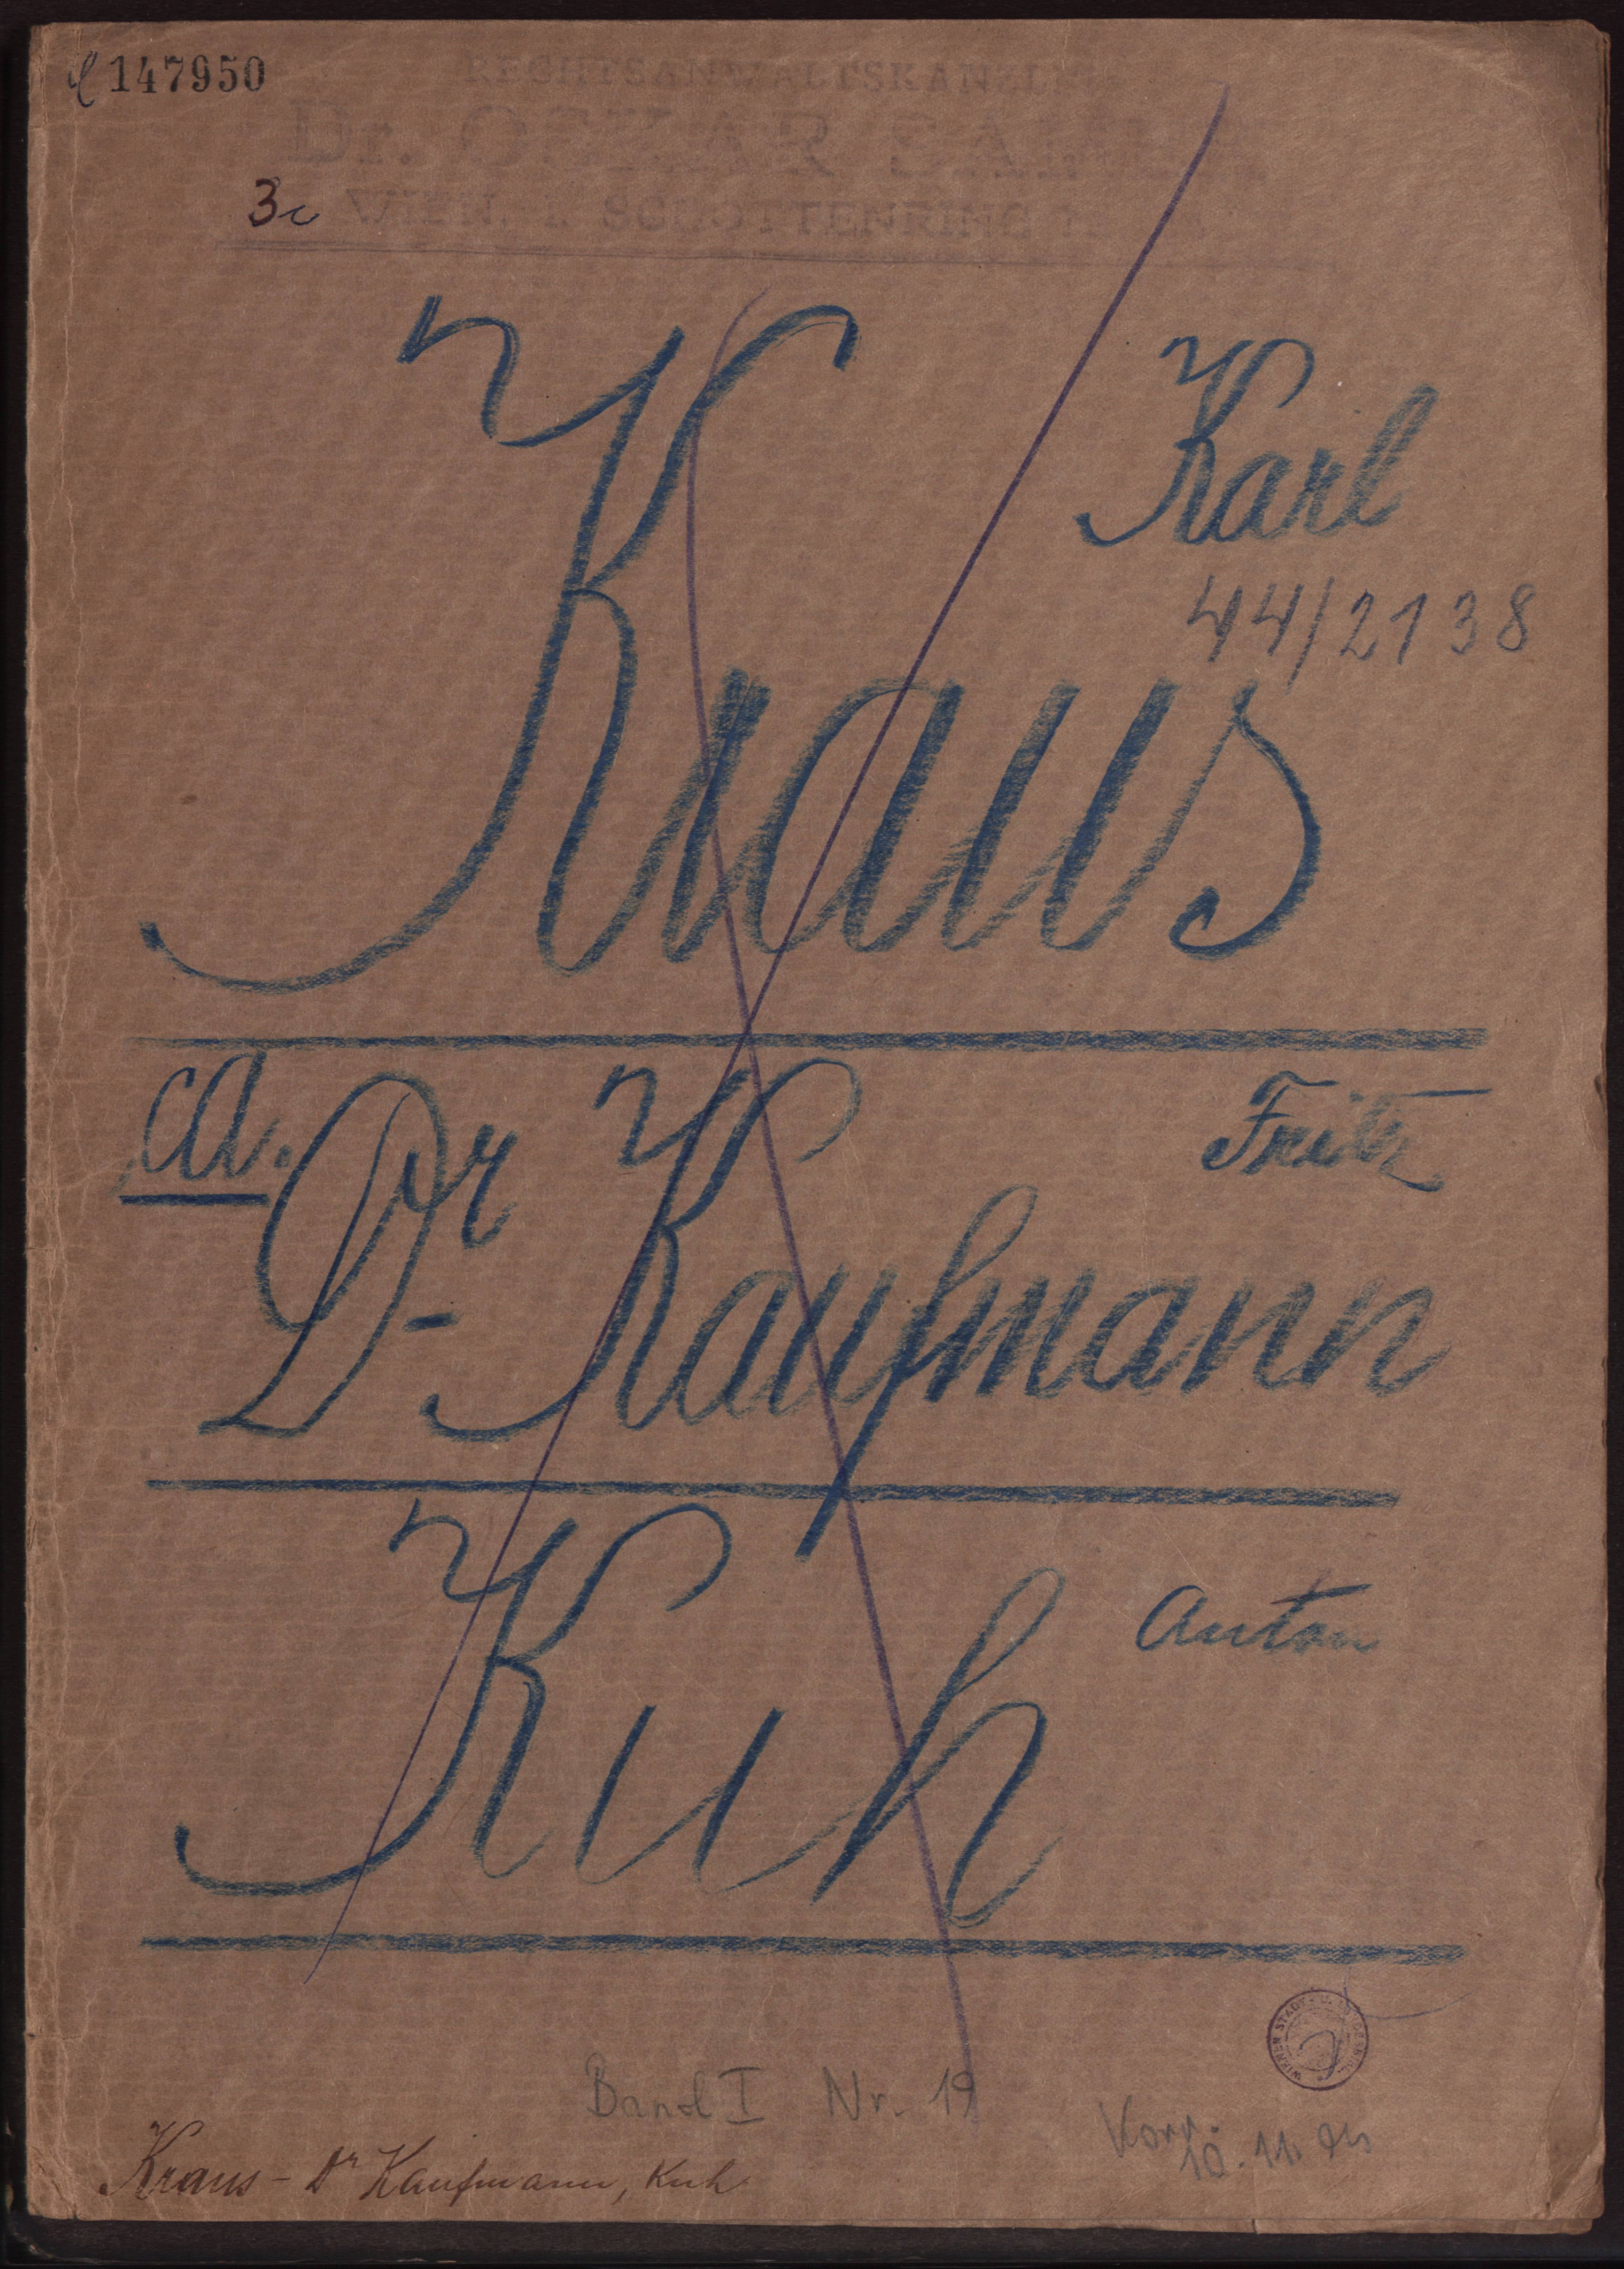 147950
RECHTSANWALTSKANZLEI
Dr. OSKAR SAMEK
WIEN, I. SCHOTTENRING
3c
Karl
44/2138
Kraus
ca. Dr Kaufmann
Fritz
Kuh
Anton
Band I Nr. 19
10. 11.
Kraus - Dr Kaufmann, Kuh